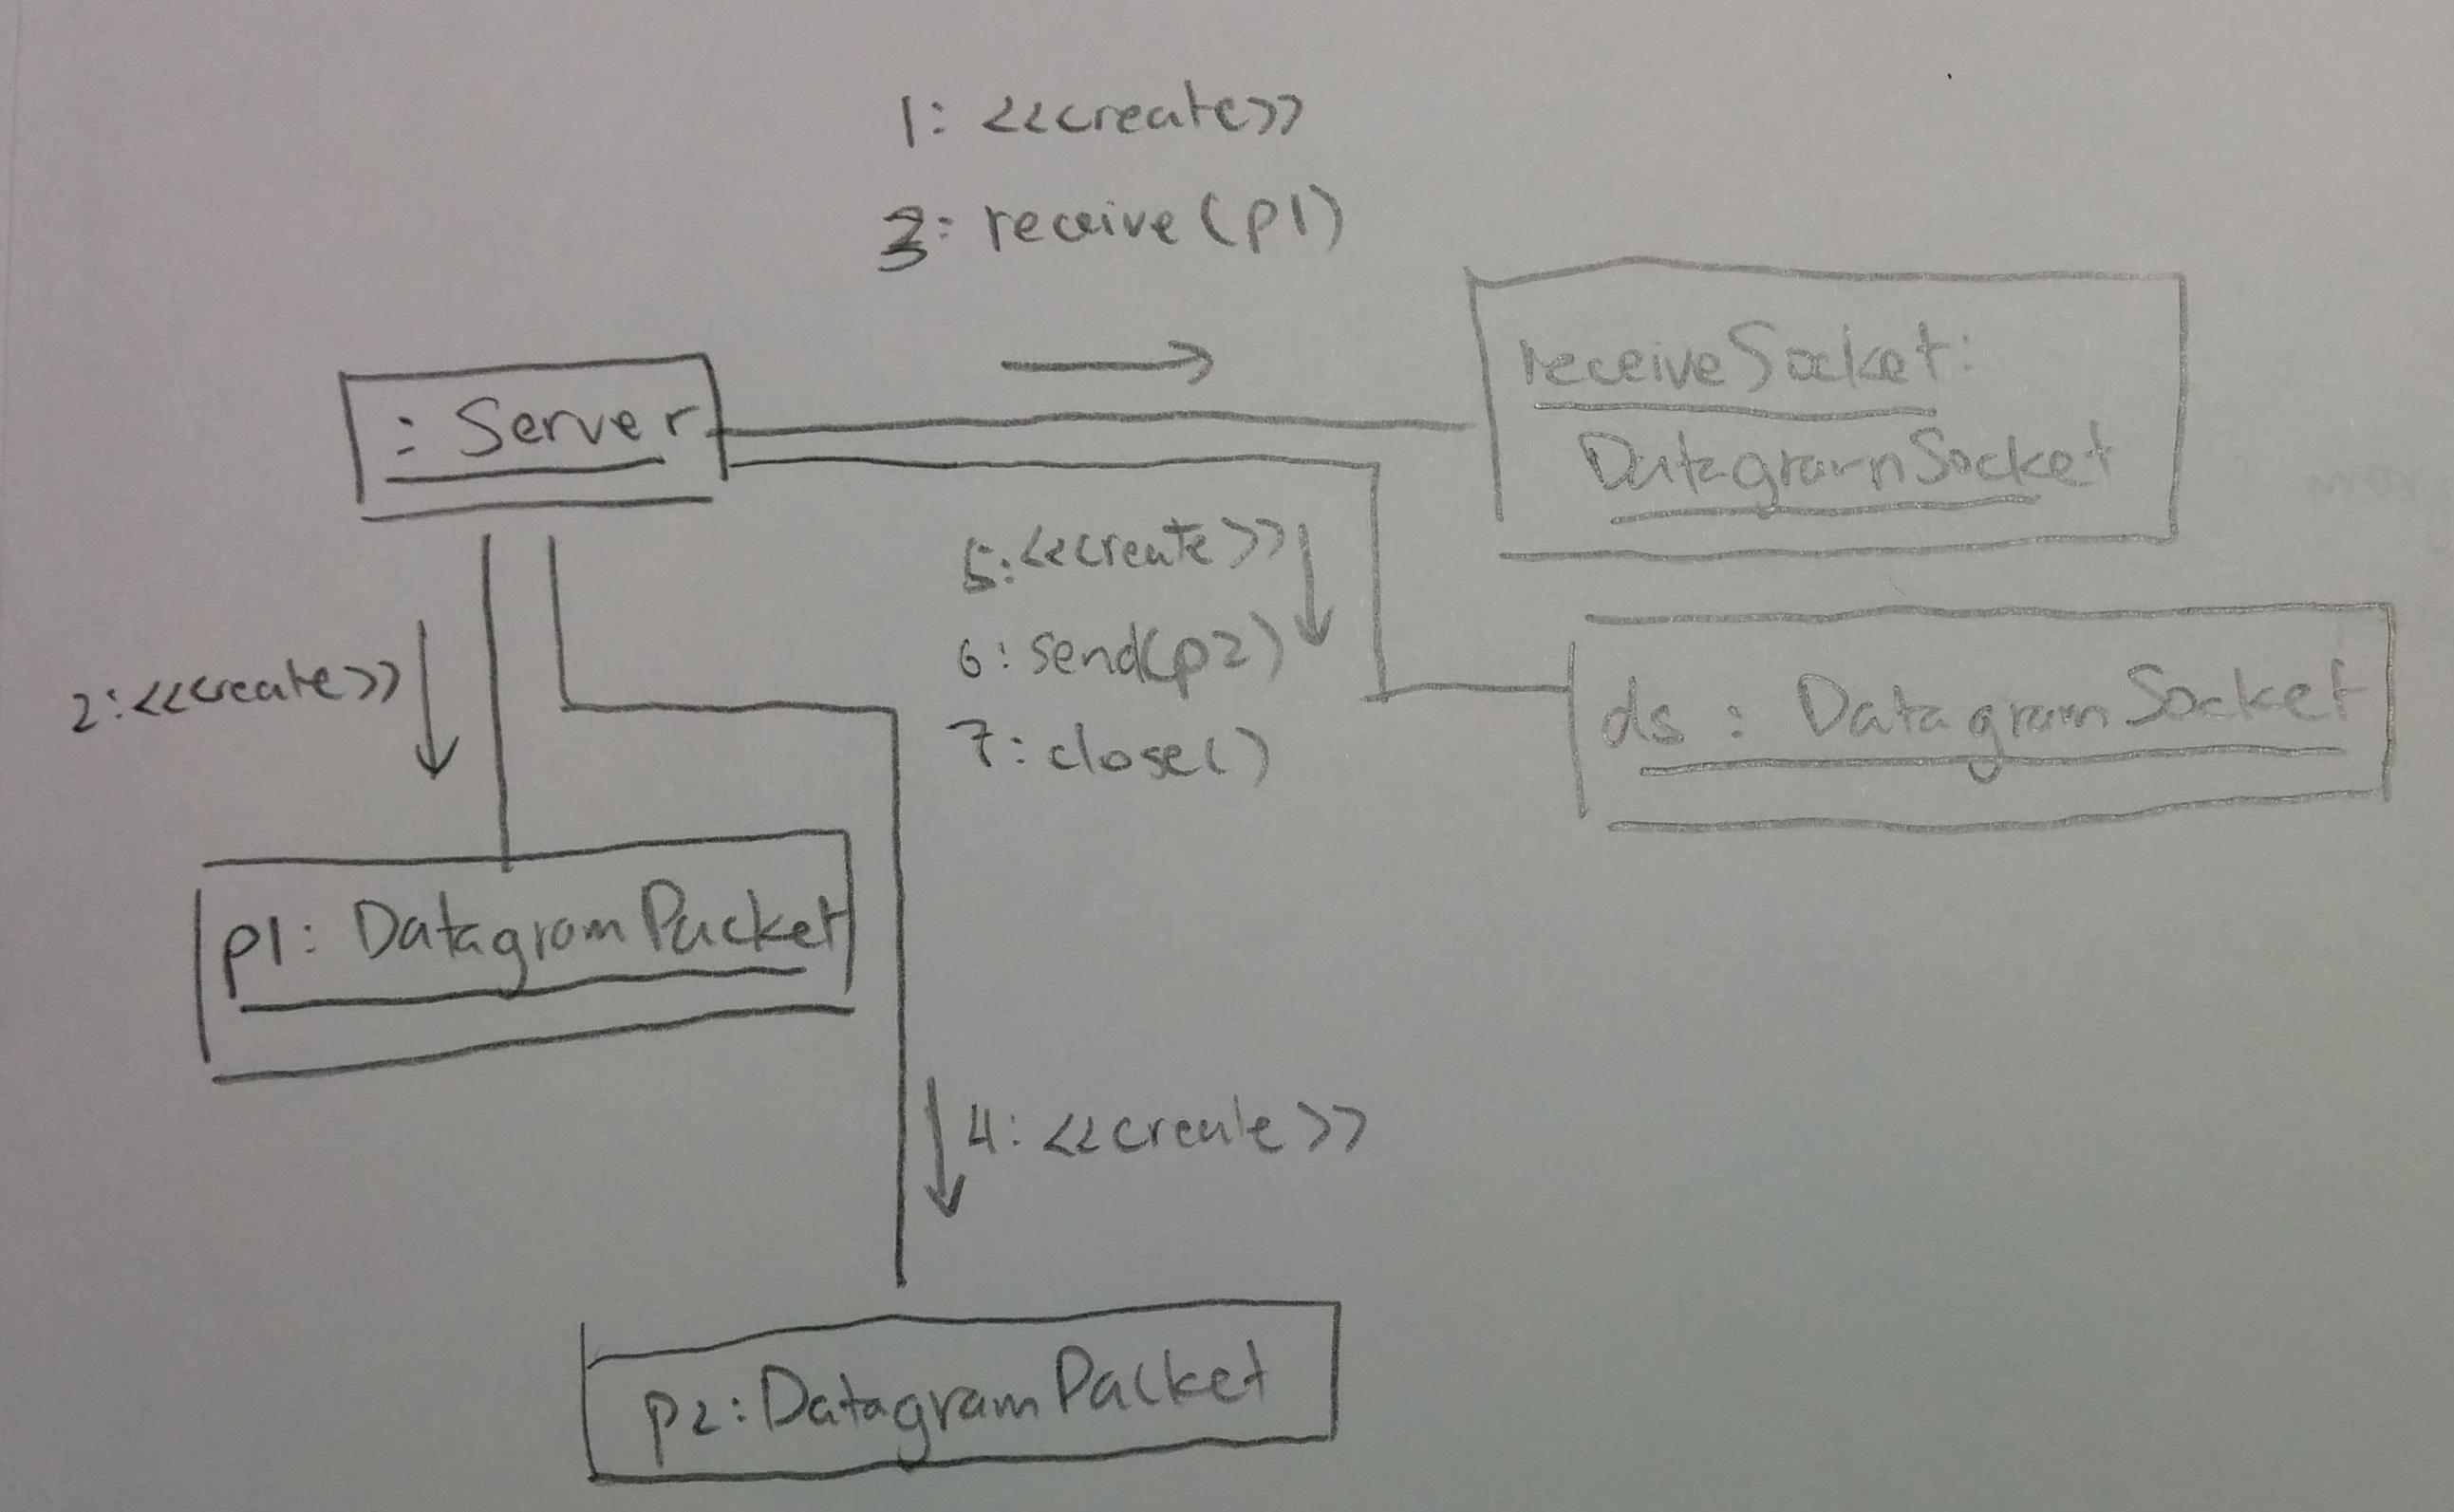 1: <<create>>
3: receive(p1)
: Server
receiveSocket:
DatagramSocket
5: <<create>>
6: send(p2)
7: close()
ds : DatagramSocket
2: <<create>>
p1: DatagramPacket
4: <<create>>
p2: DatagramPacket